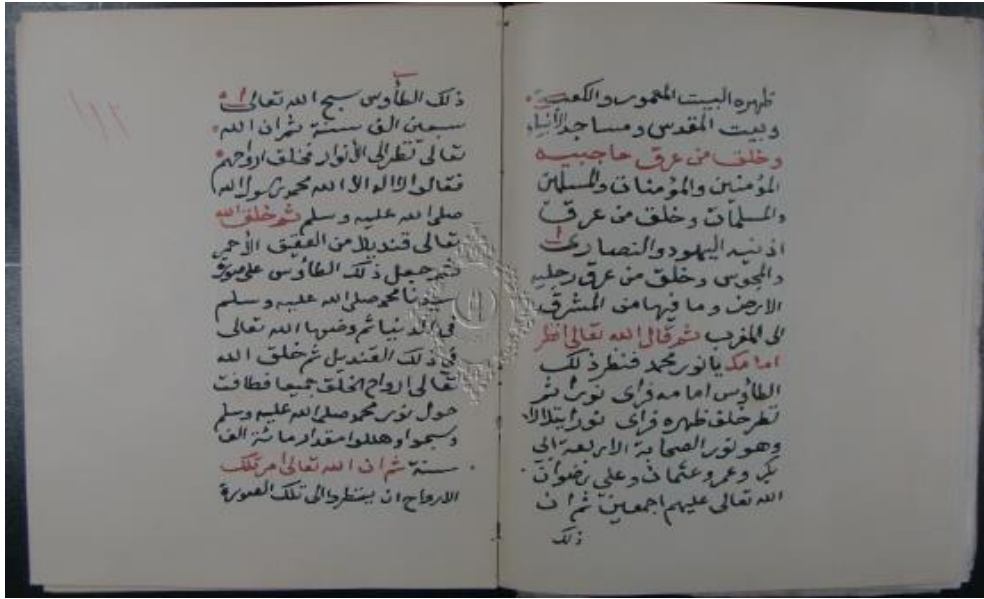 ظهره البيت المعمور والكعبة
وبيت المقدس ومساجد الأنبياء
وخلق من عرق حاجبيه
المؤمنين والمؤمنات والمسلمين
والمسلمات وخلق من عرق
اذنيه اليهود والنصارى
والمجوس وخلق من عرق رجليه
الارض وما فيها من المشرق
الى المغرب ثم قال الله تعالى انظر
امامك يا نور محمد فنظر ذلك
الطاؤس امامه فراى نورا ثم
نظر خلف ظهره فراى نورا يتلالا
وهو نور الصحابة الاربعة ابي
بكر وعمر وعثمان وعلي رضوان
الله تعالى عليهم اجمعين ثم ان
ذلك
ذلك الطأوس سبح الله تعالى
سبعين الف سنة ثم ان الله
تعالى نظر الى الأنوار فخلق ارواحهم
فقالوا لا اله الا الله محمد رسول الله
صلى الله عليه وسلم ثم خلق الله
تعالى قنديلا من العقيق الأحمر
ثم جعل ذلك الطاؤس على صورة
سيدنا محمد صلى الله عليه وسلم
في الدنيا ثم وضعها الله تعالى
في ذلك القنديل ثم خلق الله
تعالى ارواح الخلق جميعا فطافت
حول نور محمد صلى الله عليه وسلم
وسبحوا وهللوا مقدار مائة الف
سنة ثم ان الله تعالى امر تلك
الارواح ان ينظروا الى تلك الصورة